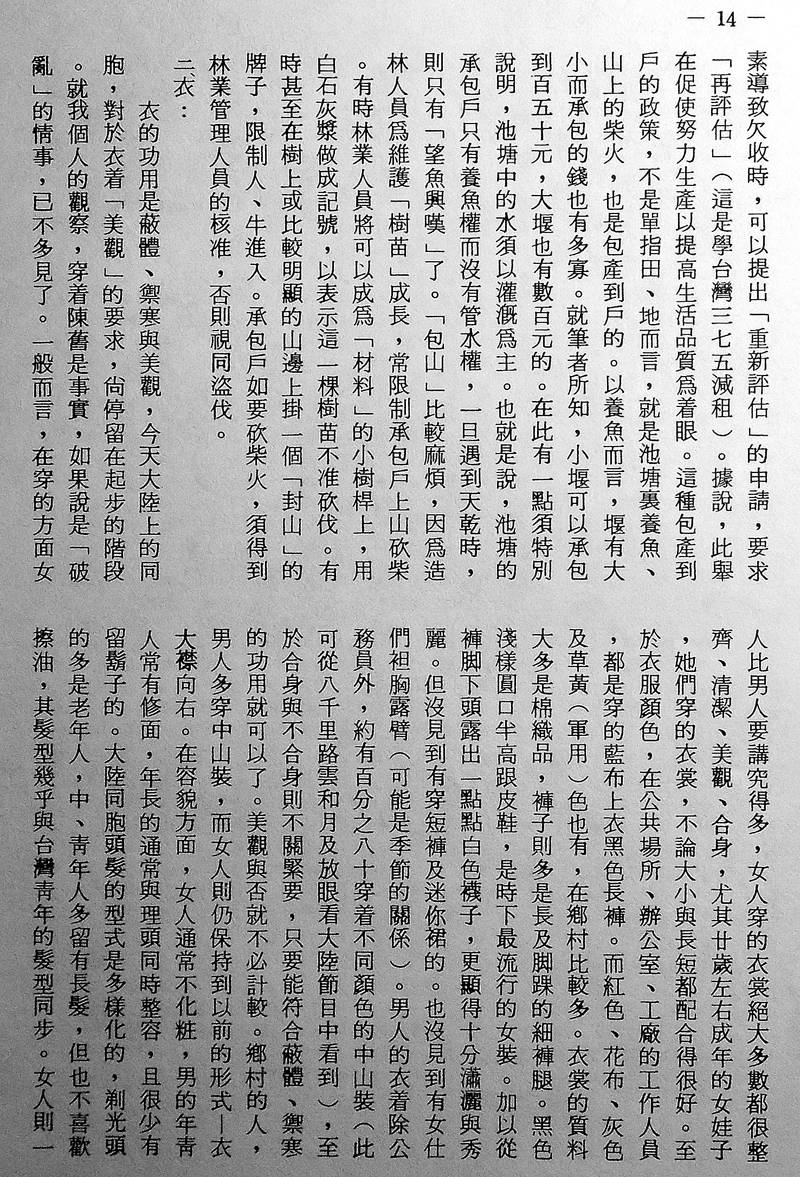 — 14 —
素導致欠收時，可以提出「重新評估」的申請，要求
「再評估」（這是學台灣三七五減租）。據說，此舉
在促使努力生產以提高生活品質爲着眼。這種包產到
戶的政策，不是單指田、地而言，就是池塘裏養魚、
山上的柴火，也是包產到戶的。以養魚而言，堰有大
小而承包的錢也有多寡。就筆者所知，小堰可以承包
到百五十元，大堰也有數百元的。在此有一點須特別
說明，池塘中的水須以灌溉爲主。也就是說，池塘的
承包戶只有養魚權而沒有管水權，一旦遇到天乾時，
則只有「望魚興嘆」了。「包山」比較麻煩，因爲造
林人員爲維護「樹苗」成長，常限制承包戶上山砍柴
。有時林業人員將可以成爲「材料」的小樹桿上，用
白石灰漿做成記號，以表示這一棵樹苗不准砍伐。有
時甚至在樹上或比較明顯的山邊上掛一個「封山」的
牌子，限制人、牛進入。承包戶如要砍柴火，須得到
林業管理人員的核准，否則視同盜伐。
二、衣：
衣的功用是蔽體、禦寒與美觀，今天大陸上的同
胞，對於衣着「美觀」的要求，尙停留在起步的階段
。就我個人的觀察，穿着陳舊是事實，如果說是「破
亂」的情事，已不多見了。一般而言，在穿的方面女
人比男人要講究得多，女人穿的衣裳絕大多數都很整
齊、清潔、美觀、合身，尤其廿歲左右成年的女娃子
，她們穿的衣裳，不論大小與長短都配合得很好。至
於衣服顏色，在公共場所、辦公室、工廠的工作人員
，都是穿的藍布上衣黑色長褲。而紅色、花布、灰色
及草黃（軍用）色也有，在鄉村比較多。衣裳的質料
大多是棉織品，褲子則多是長及脚踝的細褲腿。黑色
淺樣圓口半高跟皮鞋，是時下最流行的女裝。加以從
褲脚下頭露出一點點白色襪子，更顯得十分瀟灑與秀
麗。但沒見到有穿短褲及迷你裙的。也沒見到有女仕
們袒胸露臂（可能是季節的關係）。男人的衣着除公
務員外，約有百分之八十穿着不同顏色的中山裝（此
可從八千里路雲和月及放眼看大陸節目中看到），至
於合身與不合身則不關緊要，只要能符合蔽體、禦寒
的功用就可以了。美觀與否就不必計較。鄉村的人，
男人多穿中山裝，而女人則仍保持到以前的形式—衣
大襟向右。在容貌方面，女人通常不化粧，男的年靑
人常有修面，年長的通常與理頭同時整容，且很少有
留鬍子的。大陸同胞頭髮的型式是多樣化的，剃光頭
的多是老年人，中、靑年人多留有長髮，但也不喜歡
擦油，其髮型幾乎與台灣靑年的髮型同步。女人則一